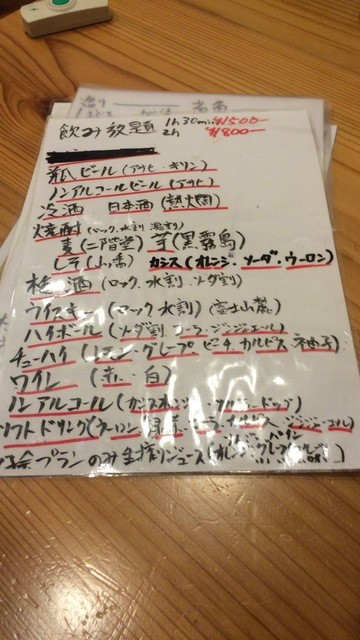 飲み放題 1h30min ¥1500-
2h ¥1800-
瓶ビール(アサヒ・キリン)
ノンアルコールビール(アサヒ)
冷酒 日本酒(熱火燗)
焼酎(ロック、水割 湯割)
麦(二階堂)芋(黒霧島)
しそ(鍛高) カシス(オレンジ・ソーダ・ウーロン)
梅酒(ロック、水割・ソーダ割)
ウイスキー(ロック 水割)(富士山麓)
ハイボール(ソーダ割 コーラ・ジンジャエール)
チューハイ(レモン・グレープ ピーチ カルピス 柚子)
ワイン(赤・白)
ノンアルコール(カシス
ソフトドリンク(ウーロン 緑茶 コーラ カルピス ジンジャーエール)
プランのみ 生搾りジュース(オレンジ パイン